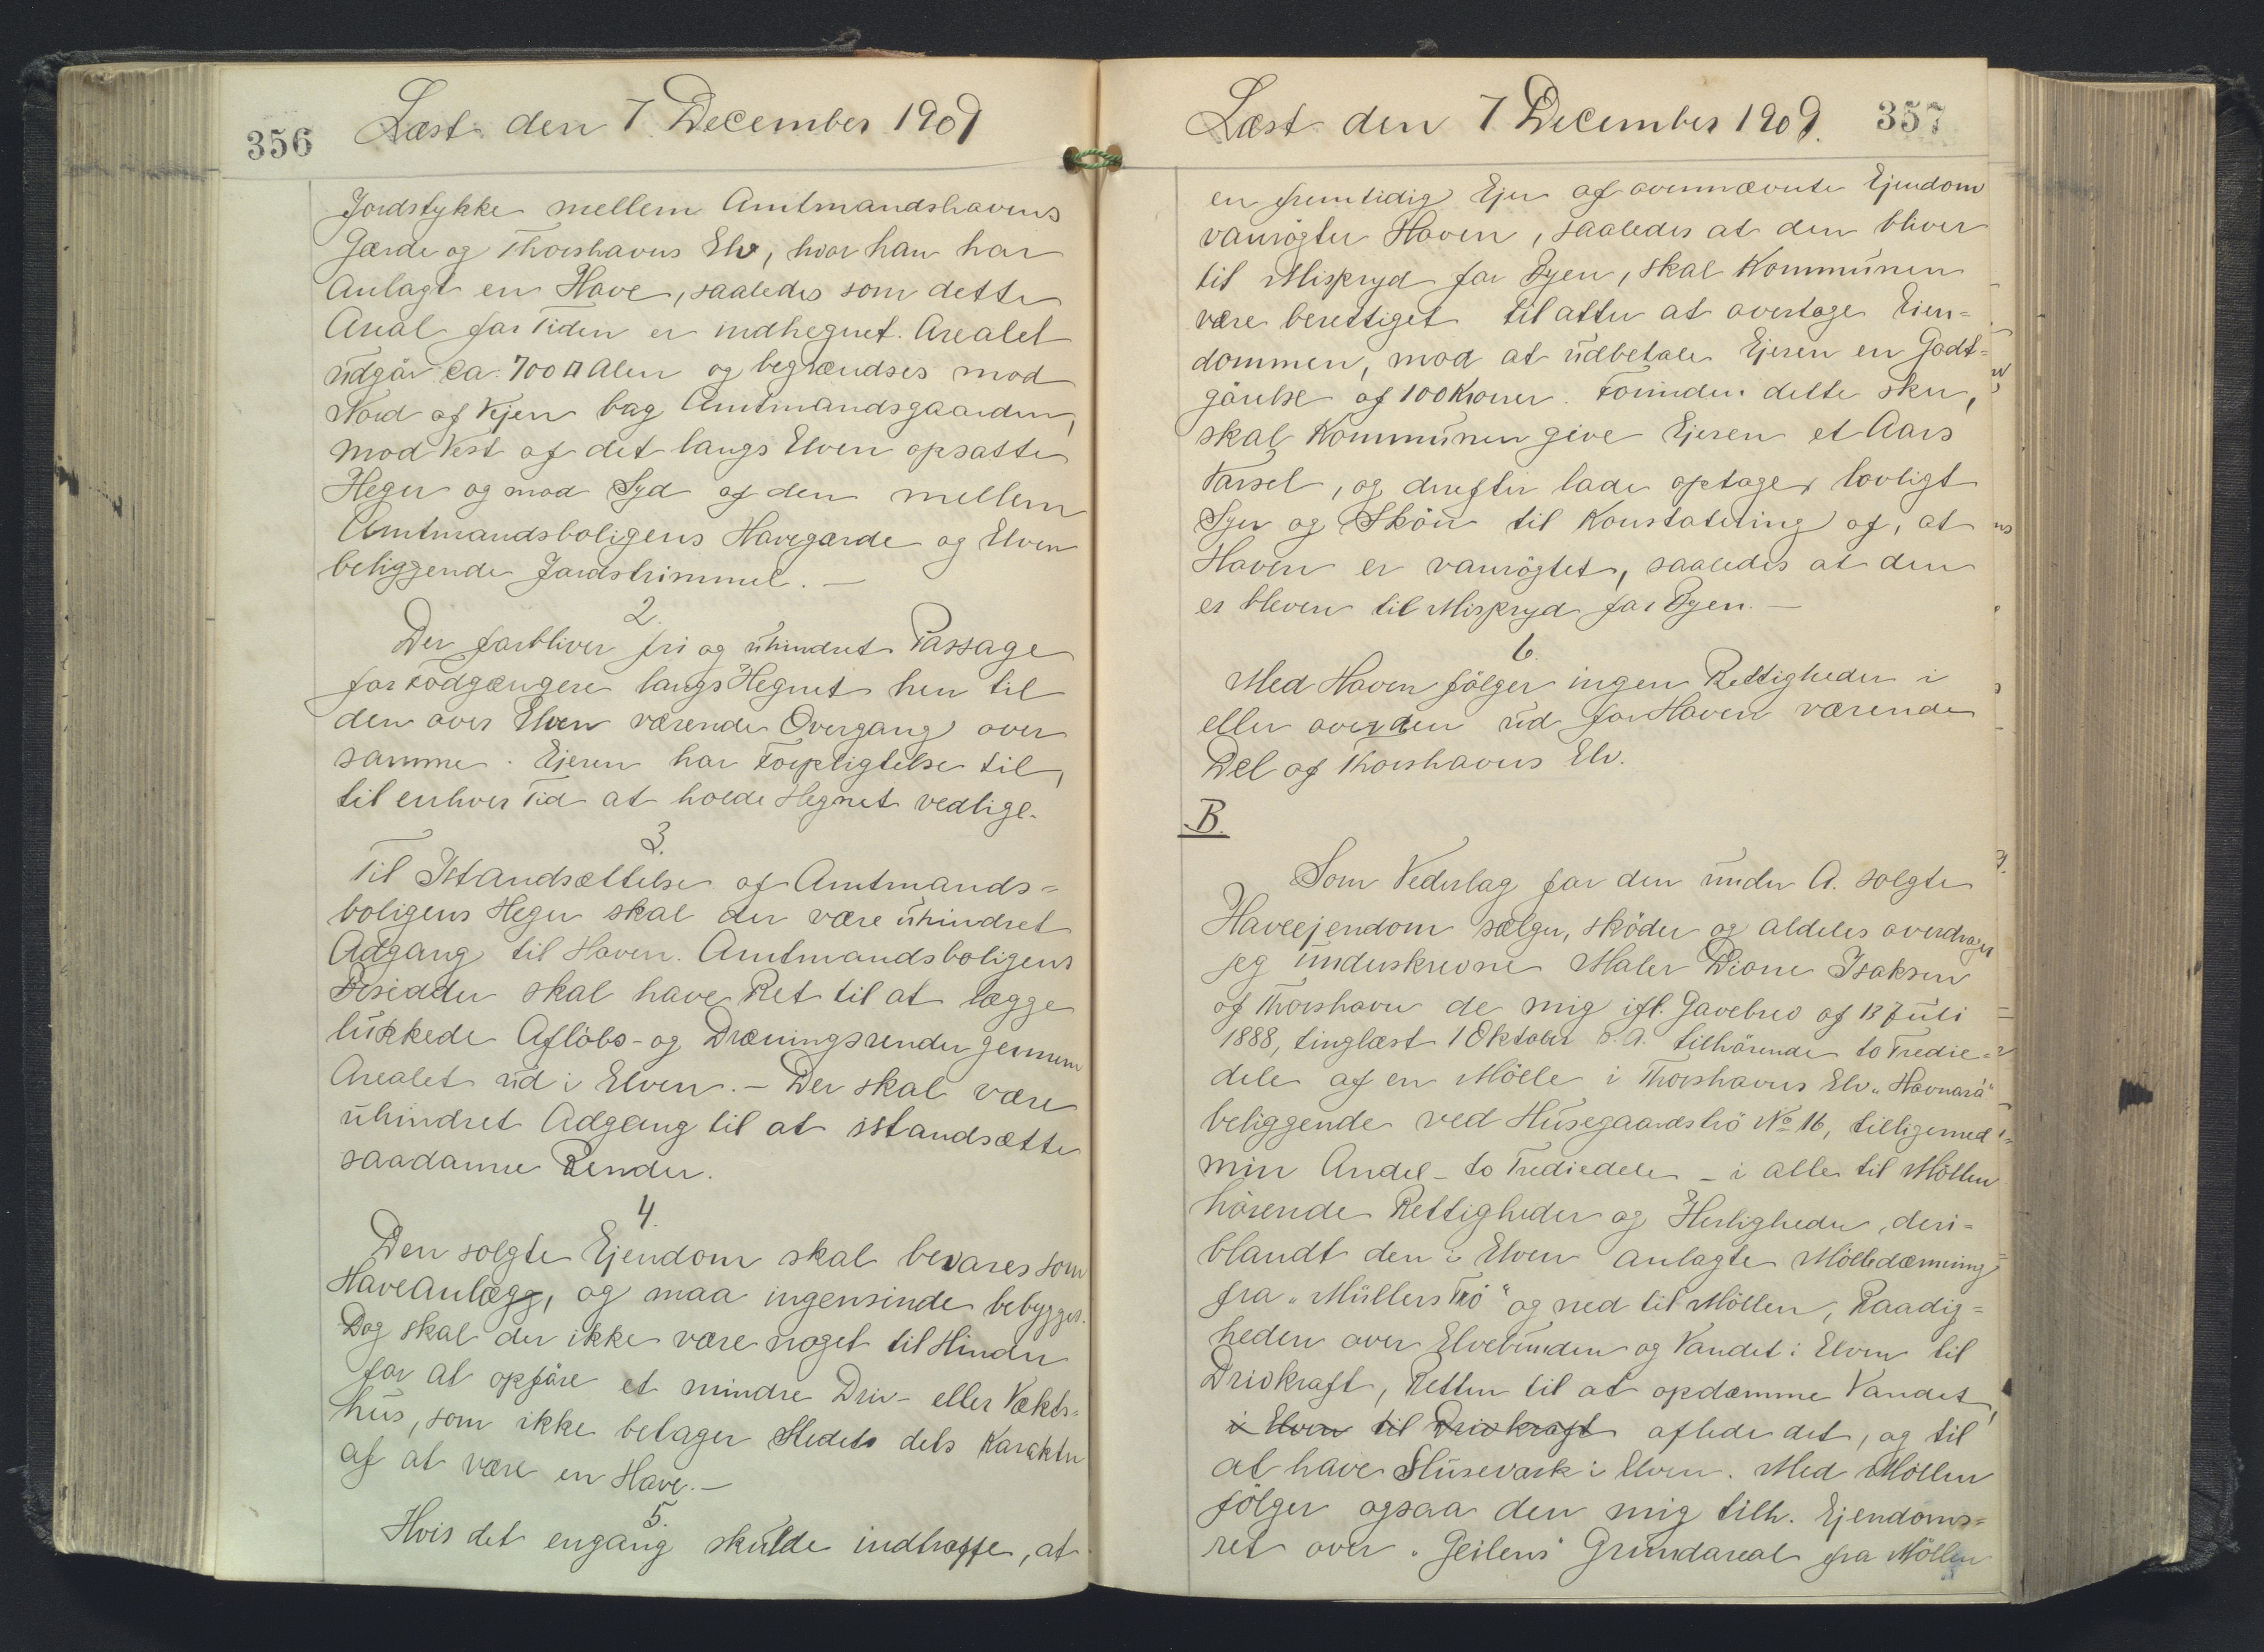 356
Læst den 7 December 1909
Jordstykke mellem Amtmandshavens
Gærde og Thorshavns Elv, hvor han har
Anlagt en Have, saaledes som dette
Areal for Tiden er indhegnet. Arealet
udgör Ca. 700 □ Alen og begrændses mod
Nord af Vejen bag Amtmandsgaarden,
mod Vest af det langs Elven opsatte
Hegn og mod Syd af den mellem
Amtmandsboligens Havegærde og Elven
beliggende Jordstrimmel. —
2.
Der forbliver fri og uhindret Passage
for Fodgængere langs Hegnet hen til
den over Elven værende Overgang over
samme. Ejeren har Forpligtelse til,
til enhver Tid at holde Hegnet vedlige.
3.
Til Istandsættelse af Amtmands=
boligens Hegn skal der være uhindret
Adgang til Haven. Amtmandsboligens
Besidder skal have Ret til at lægge
lukkede Aflöbs- og Dræningsrender gennem
Arealet ud i Elven. — Der skal være
uhindret Adgang til at istandsætte
saadanne Render.
4.
Den solgte Ejendom skal bevares som
HaveAnlægg, og maa ingensinde bebygges.
Dog skal der ikke være noget til Hinder
for at opföre et mindre Driv- eller Vækst=
hus, som ikke betager Stedets dets Karakter
af at være en Have. —
5.
Hvis det engang skulde indtræffe, at
Læst den 7 December 1909. 357
en fremtidig Ejer af ovennævnte Ejendom
vanrögter Haven, saaledes at den bliver
til Mispryd for Byen, skal Kommunen
være berettiget til atter at overtage Eien=
dommen, mod at udbetale Ejeren en Godt=
görelse af 100 Kroner. Forinden dette sker,
skal Kommunen give Ejeren et Aars
Varsel, og derefter lade optage lovligt
Syn og Skön til Konstatering af, at
Haven er vanrögtet, saaledes at den
er bleven til Mispryd for Byen. —
6.
Med Haven fölger ingen Rettigheder i
eller over den ud for Haven værende
Del af Thorshavns Elv.
B.
Som Vederlag for den under A. solgte
Haveejendom sælger, sköder og aldeles overdrager
jeg underskrevne Maler Dione Isaksen
af Thorshavn de mig ifl. Gavebrev af 13 Juli
1888, tinglæst 1 Oktober s. A. tilhörende to Tredie=
dele af en Mölle i Thorshavns Elv „Havnará"
beliggende ved Husegaardströ No 16, tilligemed
min Andel - to Trediedele - i alle til Möllen
hörende Rettigheder og Herligheder, deri=
blandt den i Elven anlagte Mölledæmning
fra „Müllers Trö" og ned til Möllen, Raadig=
heden over Elvebunden og Vandet i Elven til
Drivkraft, Retten til at opdæmme Vandet,
i Elven til Drivkraft aflede det, og til
at have Sluseværk i Elven. Med Möllen
fölger ogsaa den mig tilh. Ejendoms=
ret over „Geilens" Grundareal fra Möllen